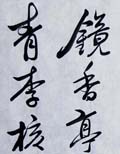 鏡香亭
青李核